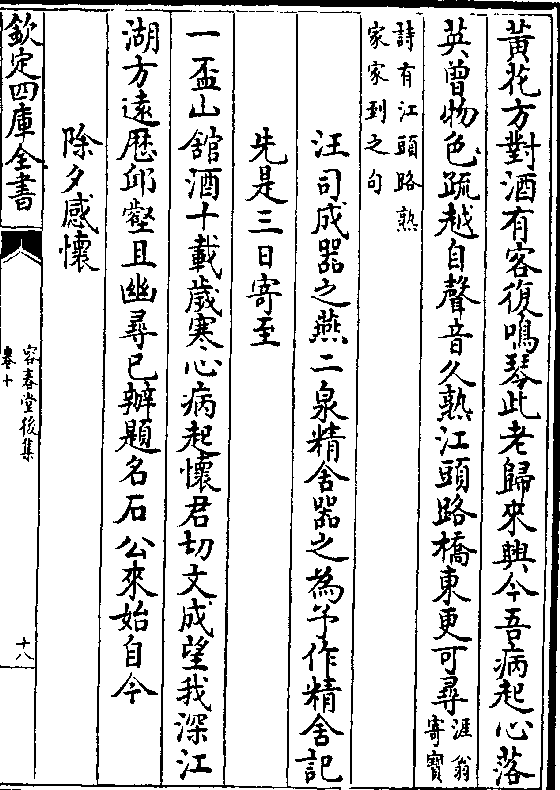 黃花方對酒有客復鳴琴此老歸來興今吾病起心落
英曽物色疏越自聲音久熟江頭路橋東更可尋涯翁寄寶
詩有江頭路熟
家家到之句
汪司成器之燕二泉精舍器之為予作精舍記
先是三日寄至
一盃山舘酒十載歲寒心病起懷君切文成望我深江
湖方遠歷邱壑且幽尋已辦題名石公來始自今
除夕感懷
欽定四庫全書
容春堂後集
卷十
十八